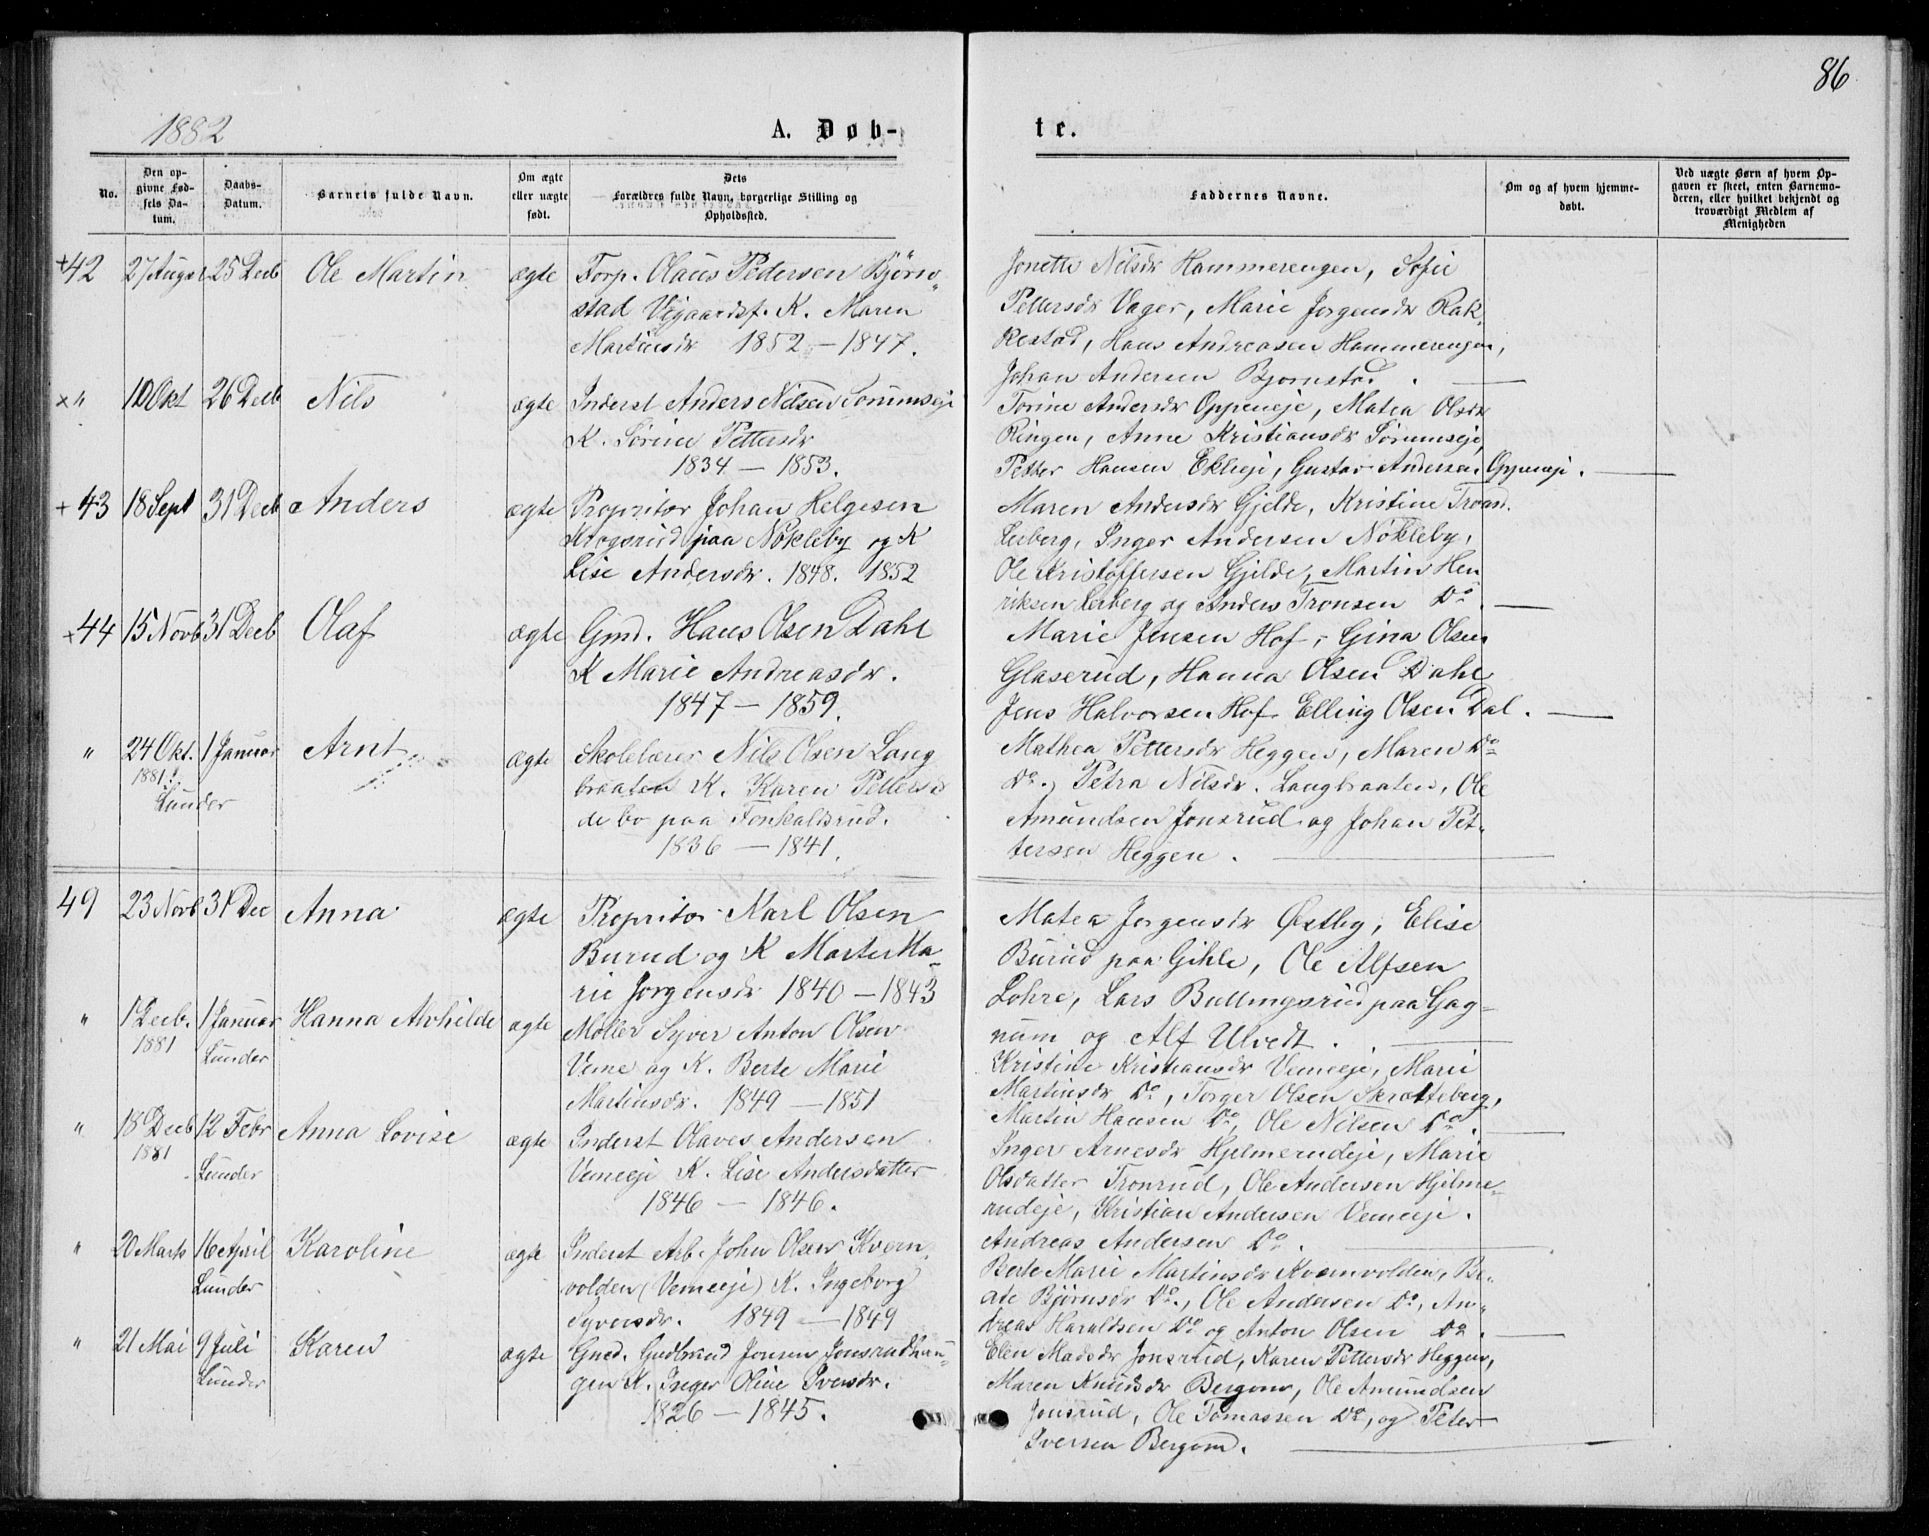 86
1882
A. Døb-
te.
No.
Den op-
givne Fød-
sels Da-
tum.
Daabs-
Datum.
Barnets fulde Navn.
Om ægte
eller uægte
født.
Dets
Forældres fulde Navn, borgerlige Stilling og
Opholdssted.
Faddernes Navne.
Om og af hvem hjemme-
døbt.
Ved uægte Børn af hvem Op-
gaven er skeet, enten Barnemo-
deren, eller hvilket bekjendt og
troværdigt Medlem af
Menigheden
+42 27 August 25 Decb Ole Martin ægte Torp. Olaus Pedersen Björn-
stad Vigaardsf. K. Maren
Martinsdr 1852 – 1847.
Jonette Nilsdr Hammerengen, Sofie
Pettersdr Vager, Marie Jorgensdr Rak-
kestad, Hans Andreasen Hammerengen,
Johan Andersen Bjornstad.
x " 10 Okt 26 Decb Nils ægte Inderst Anders Nilsen Sörumseje
K. Sørine Pettersdr
1834 – 1853.
Torine Andersdr Oppeneje, Matea Olsdr
Ringen, Anne Kristiansdr Sörumseje,
Petter Hansen Ekleje, Gustav Andersen Oppeneje.
+43 18 Sept 31 Decb Anders ægte Propritör Johan Helgesen
Krogsrud paa Nökleby og K
Lise Andersdr. 1848. 1852
Maren Andersdr Gjelde, Kristine Trond.
Lerberg, Inger Andersen Nökleby,
Ole Kristoffersen Gjilde, Martin Hen
riksen Lerberg og Anders Tronsen Do.
x44 15 Novb 31 Decb Olaf ægte Gmd. Hans Olsen Dahl
K Marie Andreasdr.
1847 – 1859.
Marie Jensen Hof, Gina Olsen
Glaserud, Hanna Olsen Dahl
Jens Halvorsen Hof Elling Olsen Dal.
" 24 Okt. 1 Januar Arnt ægte Skolelærer Nils Olsen Lang
1881.
Lunder
braaten K. Karen Pettersdr
de bo paa Fonkalsrud.
1836 – 1841.
Mathea Pettersdr Heggen, Maren Do
Do., Petra Nilsdr. Langbraaten, Ole
Amundsen Jonsrud og Johan Pet-
tersen Heggen.
49 23 Novb 31 Dec Anna ægte Propritör Karl Olsen
Burud og K Marte Ma-
rie Jorgensdr 1840 – 1843
Matea Jorgensdr Østby, Elise
Burud paa Gihle, Ole Alfsen
Lohre, Lars Bullingsrud paa Gag-
num og Alf Ulvedt.
" 1 Decb. 1 Januar Hanna Alvhilde ægte Møller Syver Anton Olsen
1881 Lunder
Veme og K. Berte Marie
Martinsdr. 1849 – 1851
Kristine Kristiansdr Vemeeje, Marie
Martinsdr Do, Torger Olsen Skrotteberg,
Martin Hansen Do, Ole Nilsen Do.
" 18 Decb 12 Febr Anna Lovise ægte Inderst Olaves Andersen
1881
Lunder
Vemeeje K. Lise Andersdatter
1846 – 1846.
Inger Arnesdr Hjelmerudeje, Marie
Olsdatter Tronrud, Ole Andersen Hjelme-
rudeje, Kristian Andersen Vemeeje.
Andreas Andersen Do.
" 20 Marts 16 April Karoline ægte Inderst Arb. John Olsen Kvern-
Lunder
volden (Vemeeje) K. Ingeborg
Syversdr. 1849 – 1849
Berte Marie Martinsdr Kvernvolden, Be-
ate Björnsdr Do., Ole Andersen Do, An-
dreas Haraldsen Do og Anton Olsen Do.
" 21 Mai 9 Juli Karen ægte Gmd. Gudbrand Jonsen Jonsrudhau-
Lunder
gen K. Inger Oline Iversdr.
1826 – 1845.
Elen Madsdr Jonsrud, Karen Pettersdr Heggen,
Maren Knudsdr Bergom, Ole Amundsen
Jonsrud, Ole Tomassen Do, og Peter
Iversen Bergom.